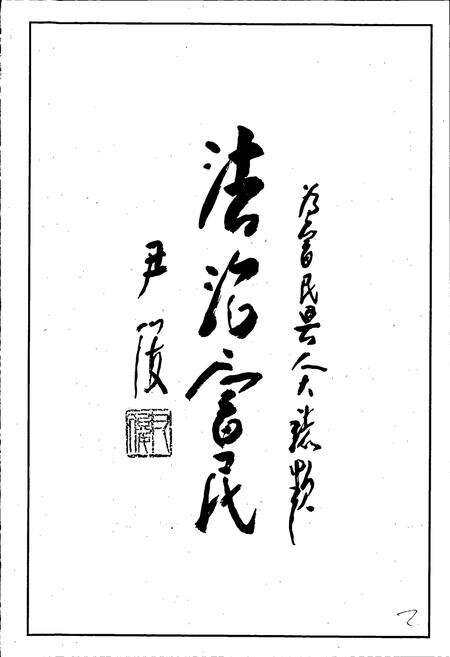 为富民县人大誌题
法治富民
尹俊